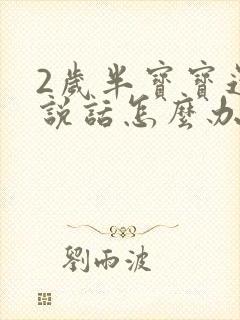 2歲半寶寶
說話怎麼办
劉雨波